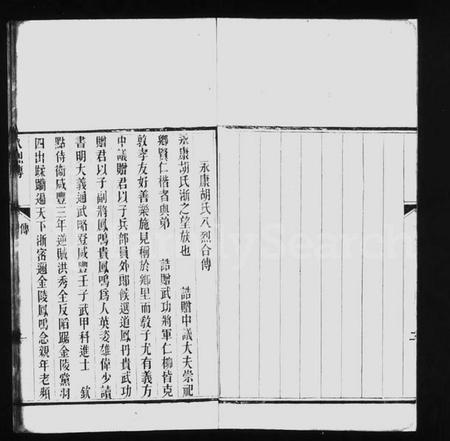 永康胡氏八烈合傳
永康胡氏浙之望族也 誥贈中議大夫崇祀
鄉賢仁楷者與弟 誥贈武功將軍仁櫛皆克
敦孝友好善樂施見稱於鄉里而教子尤有義方
中議贈君以子兵部員外郎候選道鳳丹貴武功
贈君以子副將鳳鳴貴鳳鳴爲人英姿雄偉少讀
書明大義通武略登咸豐壬子武甲科進士 欽
點侍衞咸豐三年逆賊洪秀全反陷踞金陵黨羽
四出蹂躪遍天下浙密邇金陵鳳鳴念親年老頻
傳